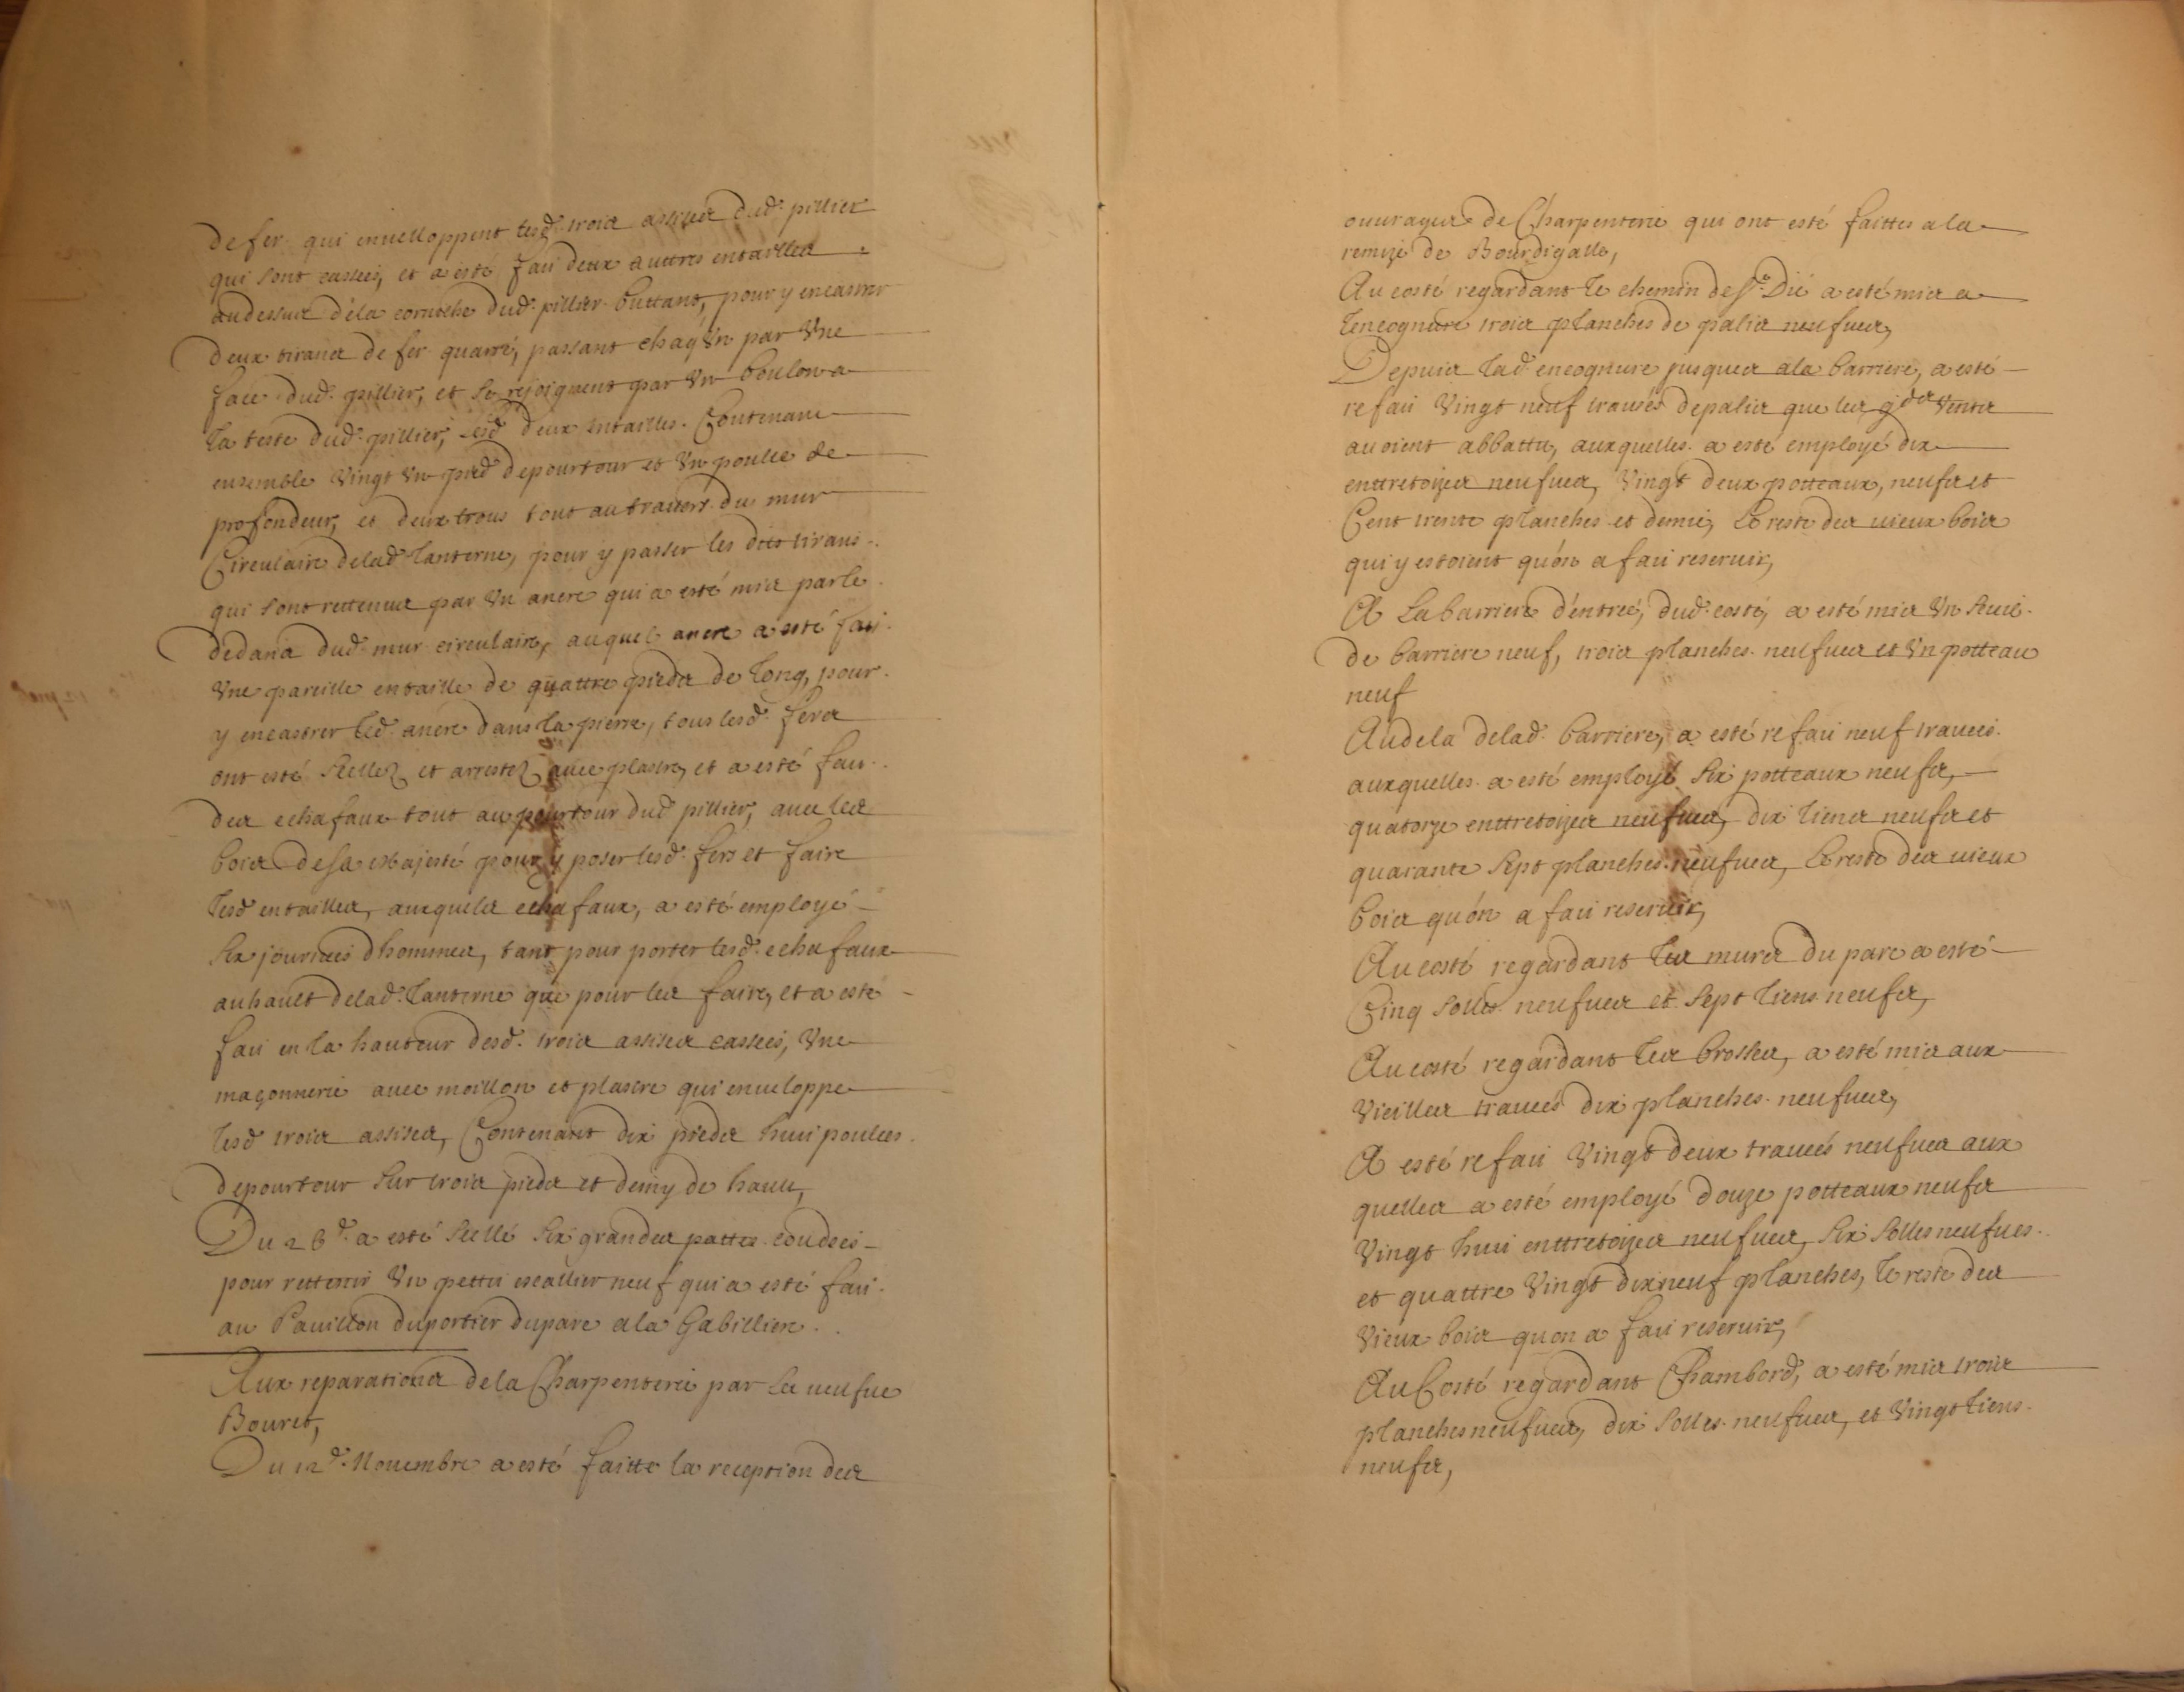 de fer qui enuelloppent lesd. trois assises dud. pillier
qui sont cassées, et a esté fait deux auttres entailles
au dessus de la corniche dud. pillier buttant, pour y encastrer
deux tirans de fer quarré, passant chaq'un par Vne
face dud. pillier, et se rejoignent par Vn boulon a
la teste dud. pillier, lesd. deux entailles. Contenant
ensemble Vingt Vn pied de pourtour et Vn poulce de
profondeur, et deux trous tout au trauers du mur
Circulaire de lad. lanterne, pour y passer les dits tirans
qui sont rettenus par Vn ancre qui a esté mis par le
dedans dud. mur circulaire, auquel ancre a esté fait
Vne pareille entaille de quattre pieds de long, pour
y encastrer led. ancre dans la pierre, tous lesd. fers
ont esté scellez et arrestez auec plastre, et a esté fait
des echafaux tout au pourtour dud. pillier, auec les
bois de sa Majesté pour y poser lesd. fers et faire
lesd. entailles, auxquels echafaux, a esté employé
six journées d'hommes, tant pour porter lesd. echafaux
au hault de lad. lanterne que pour les faire, et a esté
fait en la hauteur desd. trois assises cassées, Vne
maçonnerie auec moillon et plastre qui enueloppe
lesd. trois assises, Contenant dix pieds huit poulces
de pourtour sur trois pieds et demy de hault,
Du 28d. a esté scellé six grandes pattes coudées
pour rettenir Vn pettit escallier neuf qui a esté fait
au Pauillon du portier du parc a la Gabilliere.
Aux reparations de la Charpenterie par la ueufue
Bouret,
Du 12d. Nouembre a esté faitte la reception des
ouurages de Charpenterie qui ont esté faittes a la
remize de Bourdigalle,
Au costé regardant le chemin de St. Dié a esté mis a
lencognure trois planches de palis neufues,
Depuis lad. encognure jusques a la barriere, a esté
refait Vingt neuf trauées de palis que les gds Vents
auoient abbattu, auxquelles a esté employé dix
enttretoizes neufues, Vingt deux potteaux, neufs et
Cent trente planches et demie, Le reste des uieux bois
qui y estoient qu'on a fait reseruir,
A La barriere d'entrée, dud. costé, a esté mis Vn seuil
de barriere neuf, trois planches neufues et Vn potteau
neuf
Au dela de lad. barriere, a esté refait neuf trauees
auxquelles a esté employé six potteaux neufs,
quatorze enttretoizes neufues, dix liens neufs et
quarante sept planches neufues, Le reste des uieux
bois qu'on a fait reseruir,
Au costé regardant les murs du parc a esté
Cinq solles neufues et sept liens neufs,
Au costé regardant les brosses, a esté mis aux
Vieilles trauées dix planches neufues,
A esté refait Vingt deux trauées neufues aux
quelles a esté employé douze potteaux neufs
Vingt huit enttretoizes neufues, six solles neufues
et quattre Vingt dix neuf planches, le reste des
Vieux bois quon a fait reseruir,
Au Costé regardant Chambord, a esté mis trois
planches neufues, dix solles neufues, et Vingt liens
neufs,